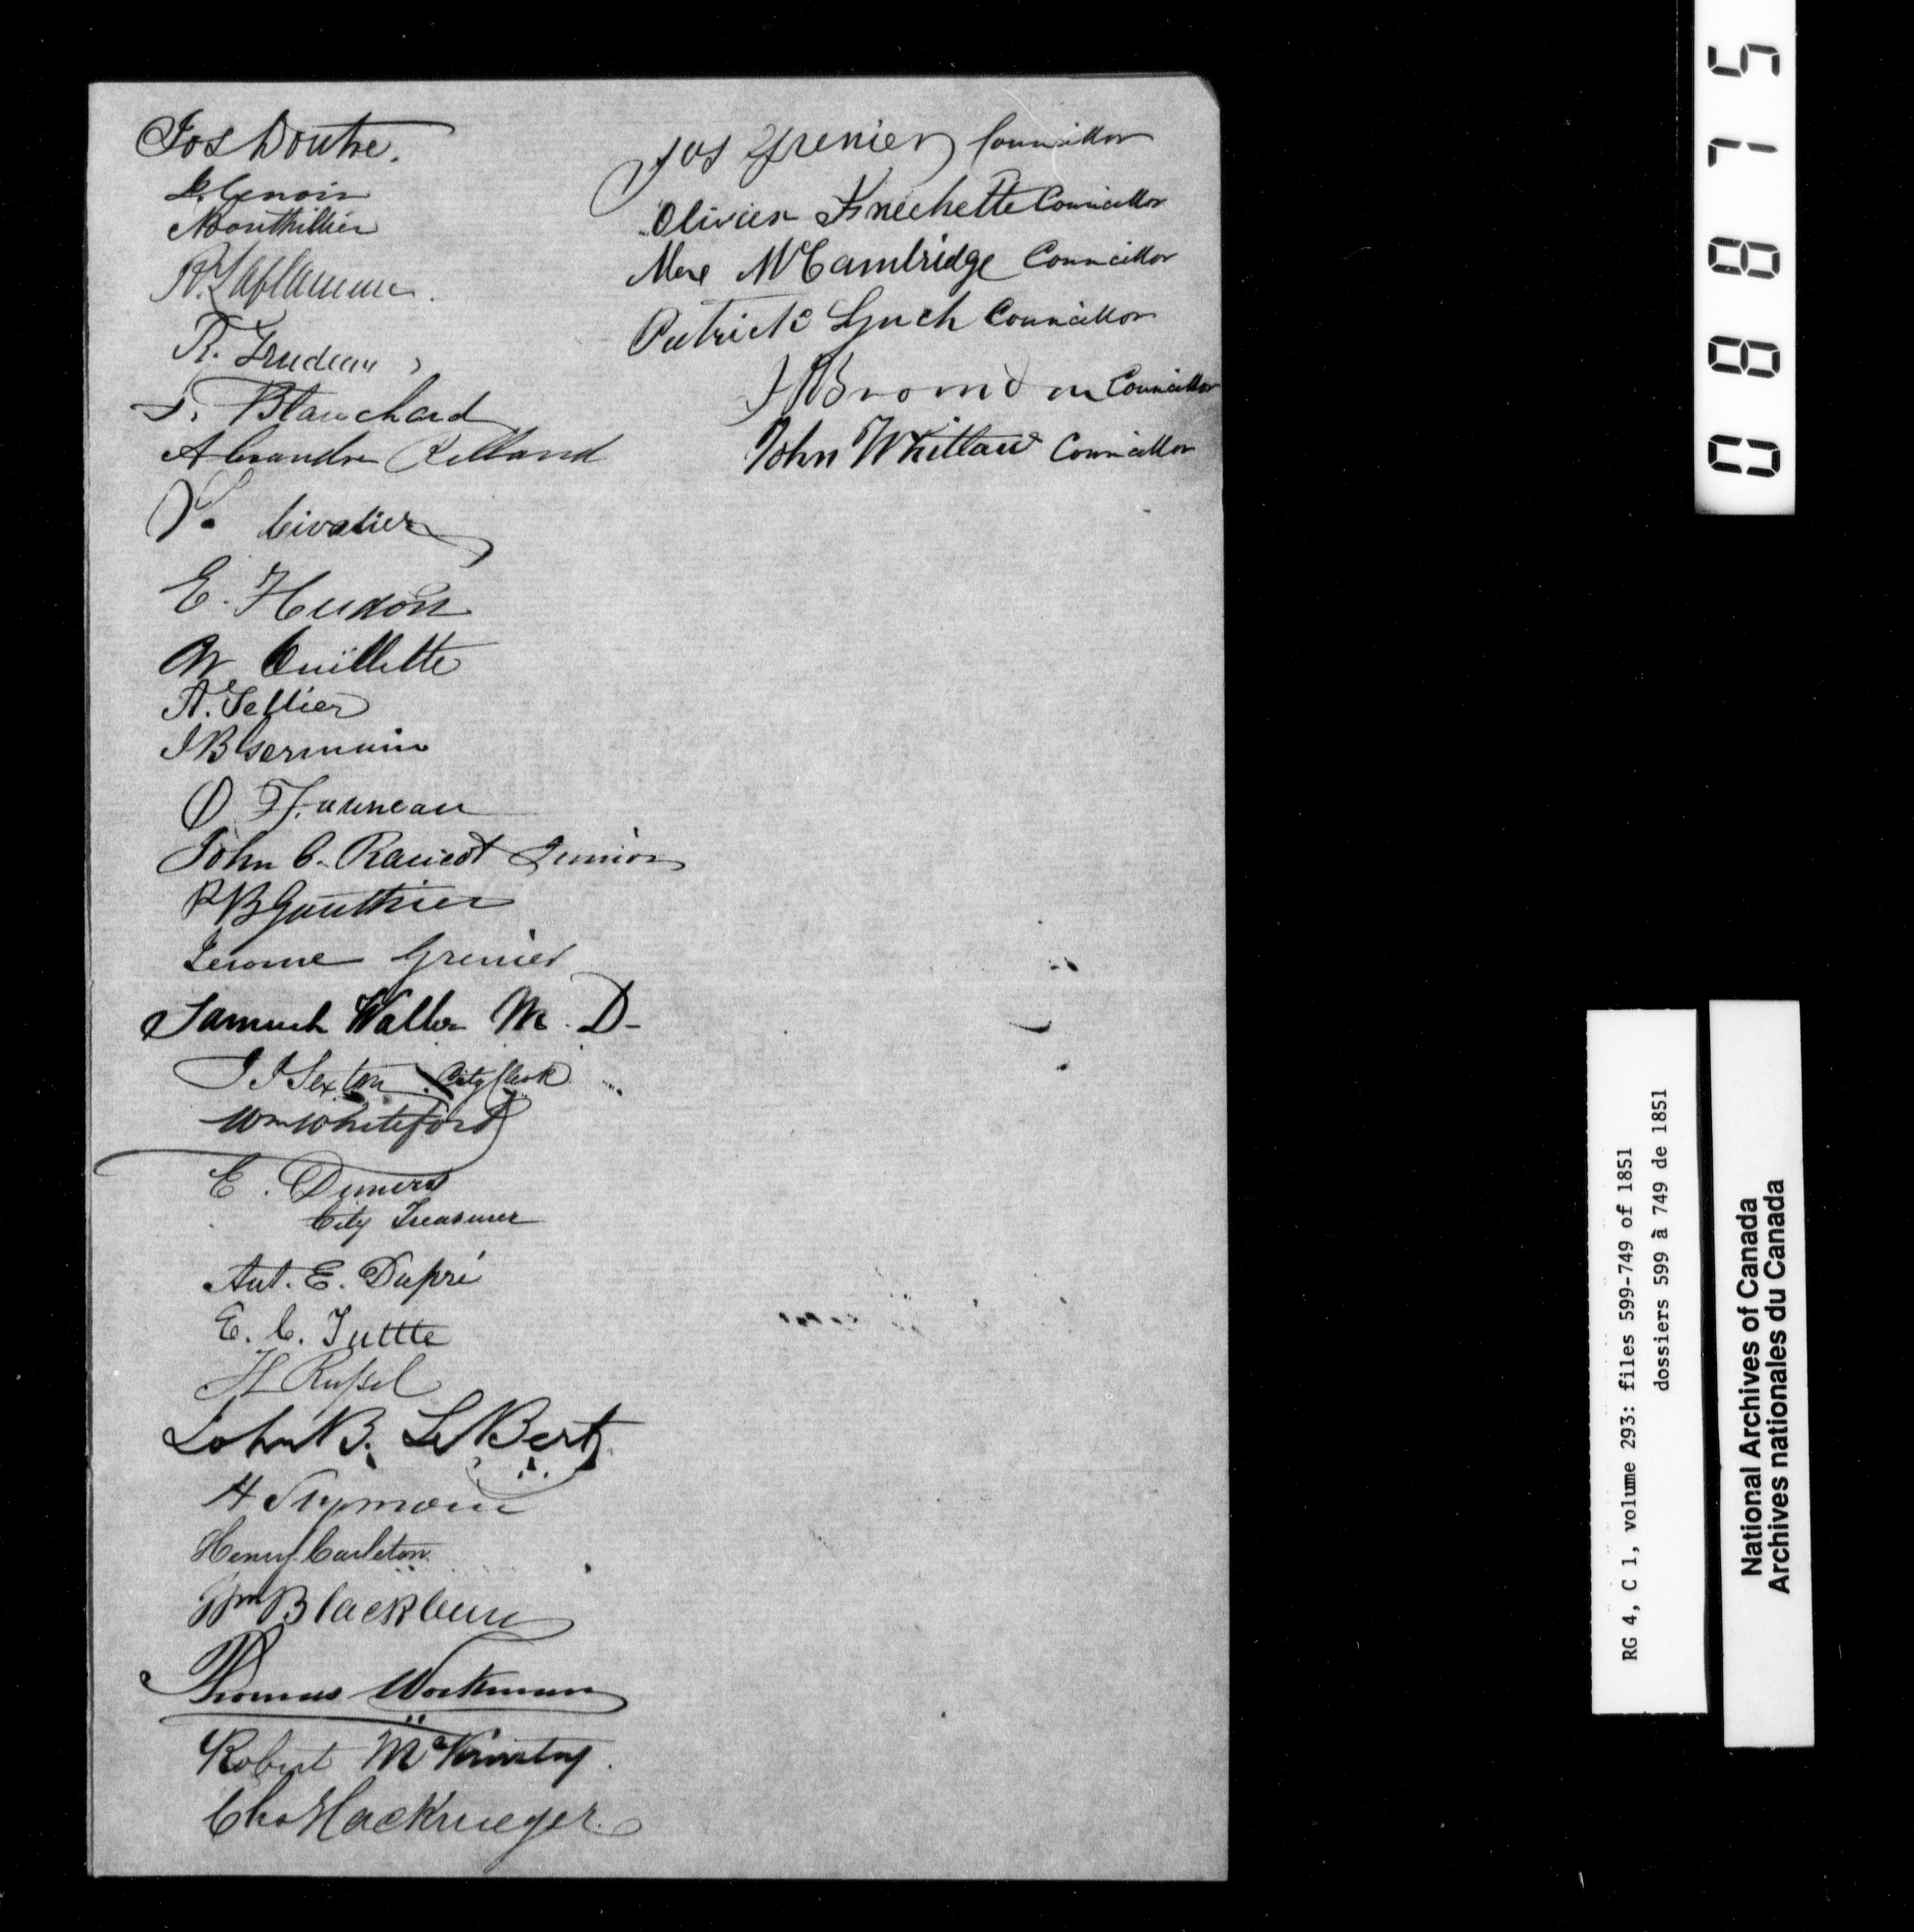 Jos Doutre.
J. Lenoir
R. Laflamme.
R. Trudeau
J. Blanchard
Alexandre
E. Hudon
W Ouillette
A. Tellier
J B Germain
John C. Racicot Junior
P B Gauthier
Jerome Grenier
Samuel Waller M. D
J P Sexton City Clerk
Wm Whiteford
E. Demers
City Treasurer
Ant. E. Dupré
E. C. Tuttle
H Russel
John B.
H Seymour
Henry Carleton
Wm Blackburn
Thomas Workman
Robert
Chs Hackrueger.
Jos Grenier Councillor
Olivier Frechette Councillor
Alex McCambridge Councillor
Patrick Lynch Councillor
Councillor
John Whitlaw Councillor
08875
RG 4, C 1, volume 293: files 599-749 of 1851
dossiers 599 à 749 de 1851
National Archives of Canada
Archives nationales du Canada